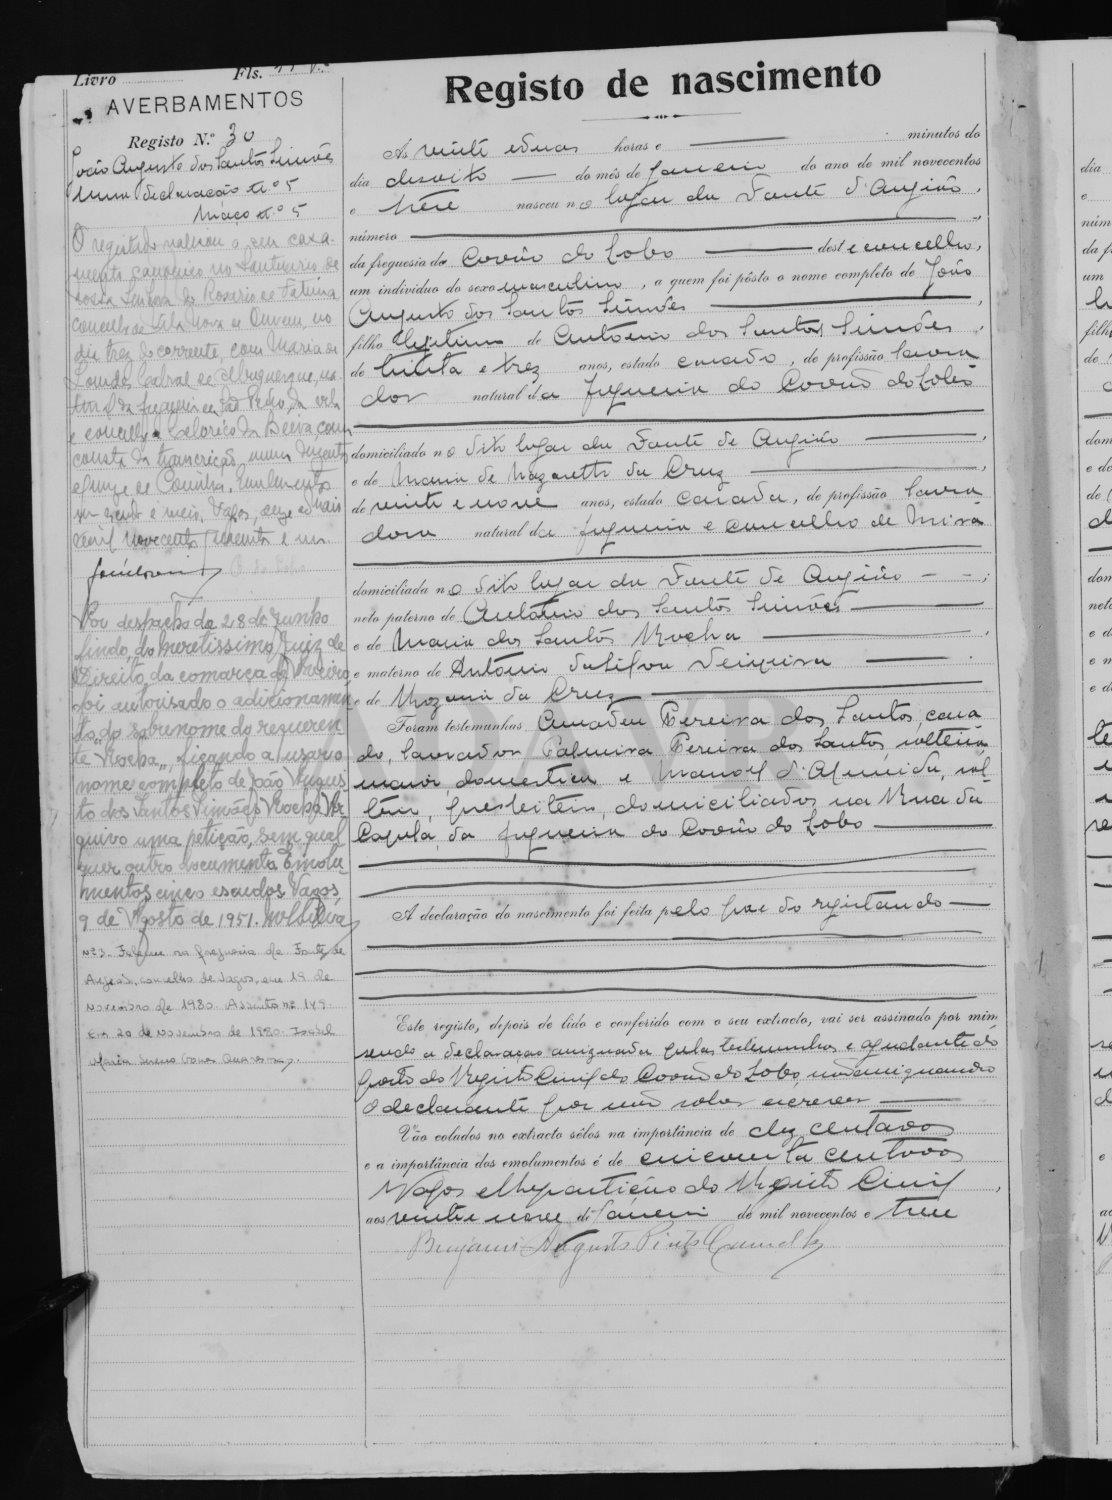 Livro Fls.
AVERBAMENTOS
Registo N.º 30
João Augusto dos Santos Simões
uma declaração nº 5
Maço nº 5
O registado realisou o seu casa-
mento canonico no Santuario de
Nossa Senhora do Rosario de Fatima
concelho de Vila Nova de Ourem, no
dia trez do corrente, com Maria de
Lourdes Cabral de Albuquerque, na-
tural da freguesia de São Pedro, da vila
e concelho Celorico da Beira, como
consta da transcrição numero duzentos
e quinze de Coimbra.
e meio. Vagos, onze de Maio
de mil novecentos quarenta e um.
Por despacho de 28 de Junho
findo, do Meretissimo Juiz de
Direito da comarca de Aveiro,
foi autorisado o adicionamen
to do sobrenome do requeren
te "Rocha", ficando a usar o
nome completo de João Augus
to dos Santos Simões Rocha. Ar
quivo uma petição, sem qual
quer outro documento. Emolu-
mentos cinco escudos. Vagos,
9 de Agosto de 1951.
Nº 3. Faleceu na freguesia de Fonte de
Angeão, concelho de Vagos, em 19 de
Novembro de 1980. Assento nº 149.
Em 20 de Novembro de 1980. Isabel
Maria
Registo de nascimento
Ás vinte e duas horas e — minutos do
dia desoito — do mês de Janeiro do ano de mil novecentos
e treze nasceu no lugar da Fonte d'Angião,
número —
da freguesia do Covão do Lobo — deste concelho,
um indivíduo do sexo masculino, a quem foi pôsto o nome completo de João
Augusto dos Santos Simões —,
filho legitimo de António dos Santos Simões,
de trinta e trez anos, estado casado, de profissão lavra
dor natural da freguesia do Covão do Lobo
domiciliado no dito lugar da Fonte de Angião —,
e de Maria de Nazareth da Cruz —,
de vinte e nove anos, estado casada, de profissão lavra
dora natural da freguesia e concelho de Mira
domiciliada no dito lugar da Fonte de Angião — —;
neto paterno de António dos Santos Simões —
e de Maria dos Santos Rocha —,
e materno de António da Silva Teixeira —
e de Rozaria da Cruz —
Foram testemunhas Amadeu Pereira dos Santos, casa
do, lavrador, Palmira Pereira dos Santos, solteira,
maior, domestica e Manoel d'Almeida, sol-
teiro, presbitero, domiciliados na Rua da
Capela, da freguesia do Covão do Lobo —
A declaração do nascimento foi feita pelo pae do registando —
Este registo, depois de lido e conferido com o seu extracto, vai ser assinado por mim
sendo a declaração assignada pelas testemunhas e ajudante do
posto do Registo Civil do Covão do Lobo, não assignando
o declarante por não saber escrever —
Vão colados no extracto sêlos na importância de dez centavos
e a importância dos emolumentos é de cincoenta centavos
Vagos e Repartição do Registo Civil,
aos vinte e nove de Janeiro de mil novecentos e treze
Benjamin Augusto Pinto